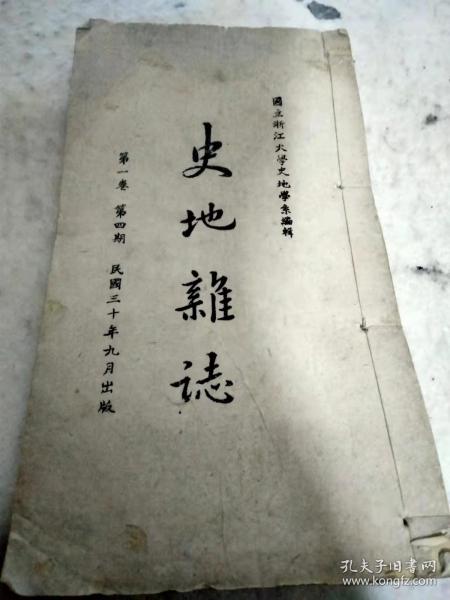 國立浙江大學史地學系編輯
史地雜誌
第一卷 第四期 民國三十年九月出版
孔夫子旧书网
www.kongfz.com